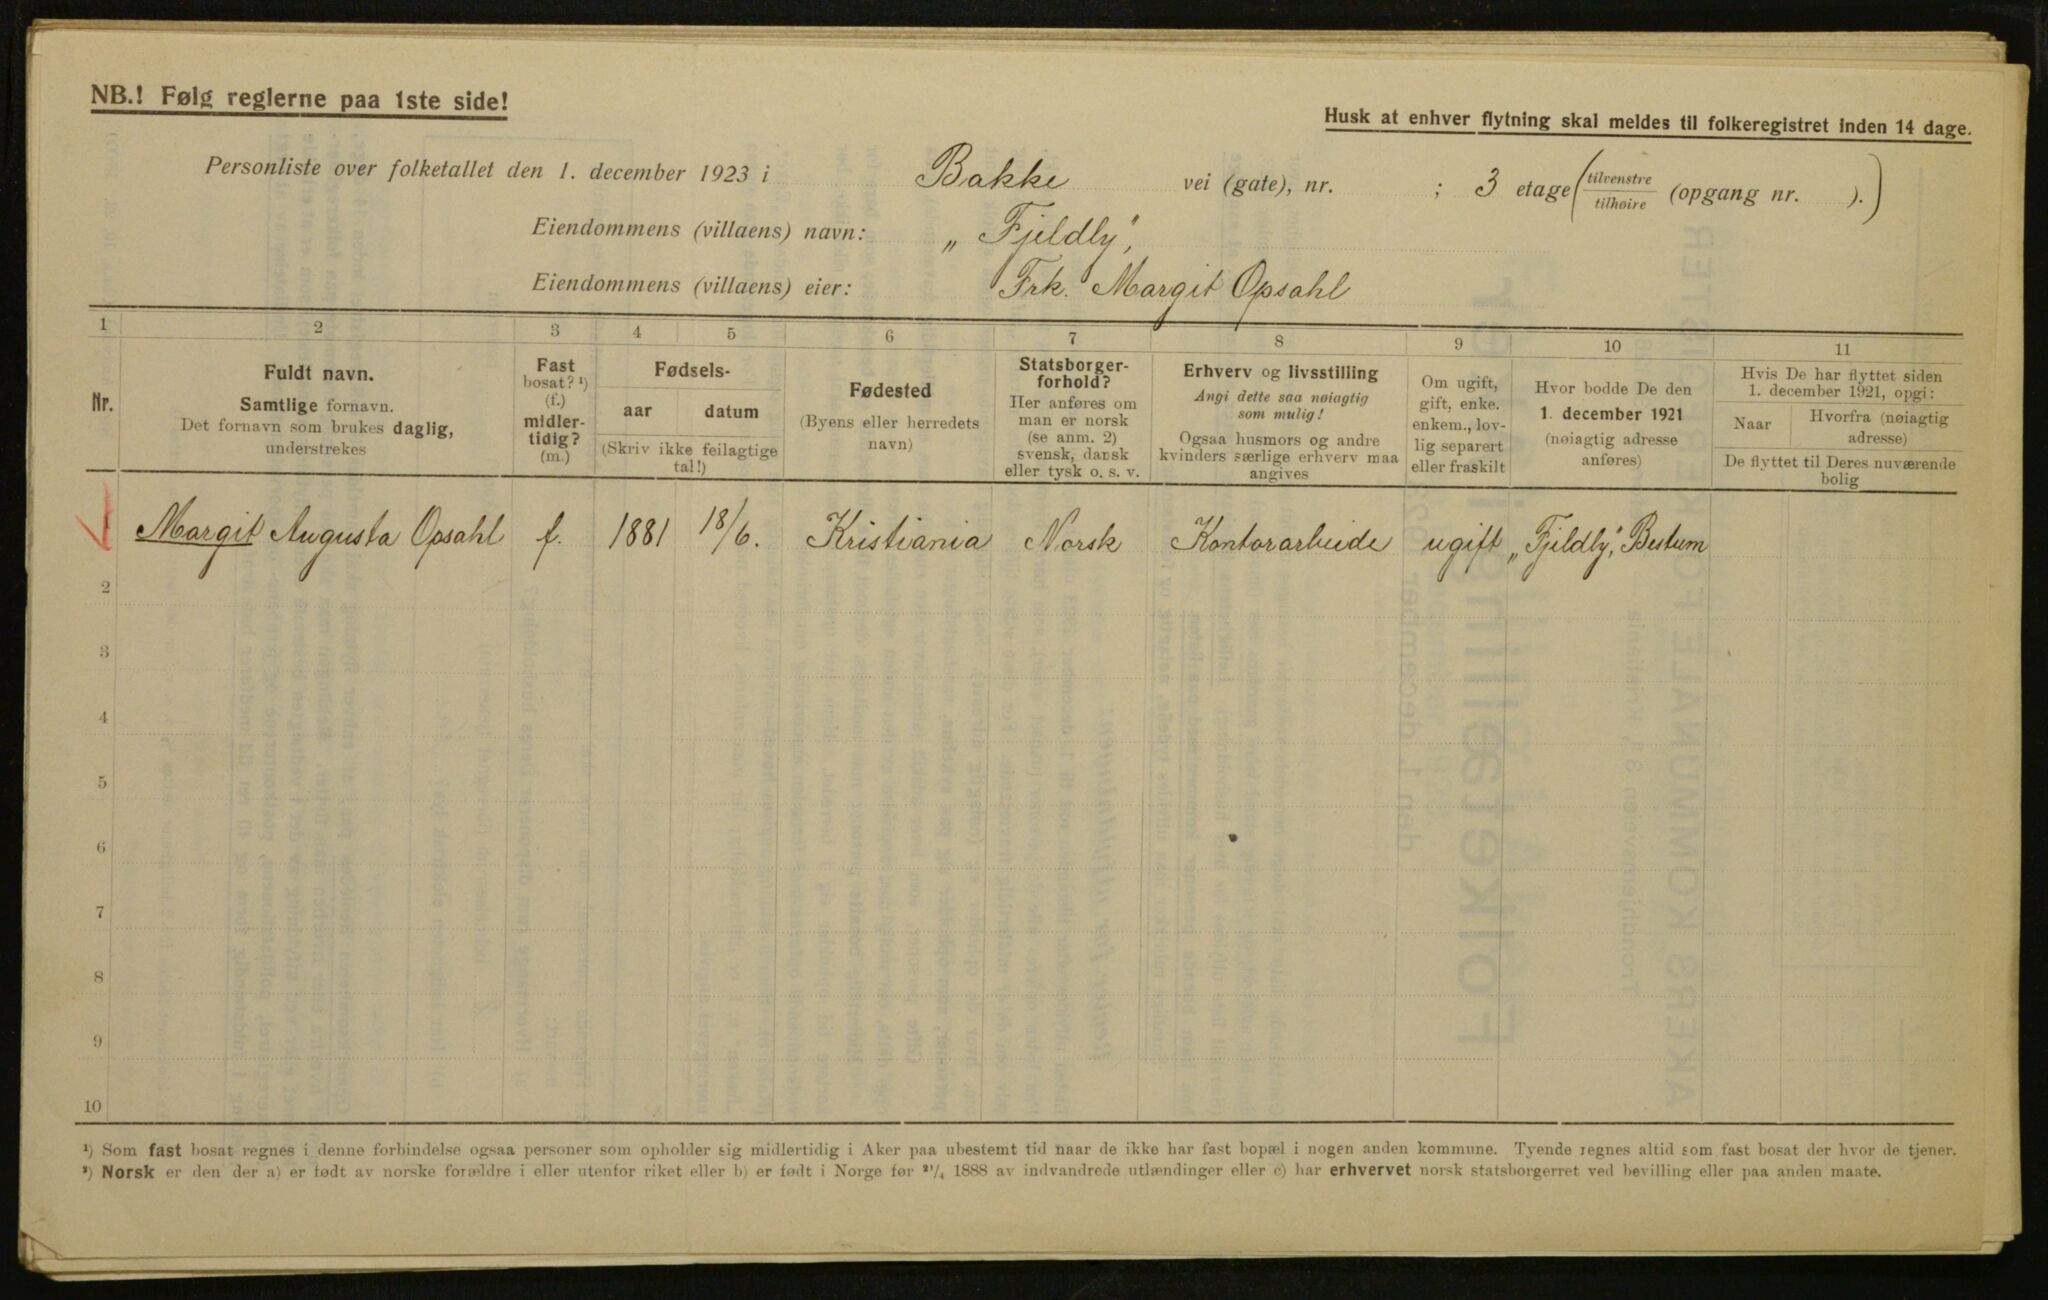 NB.! Følg reglerne paa 1ste side!
Husk at enhver flytning skal meldes til folkeregistret inden 14 dage.
Personliste over folketallet den 1. december 1923 i Bakke vei (gate), nr. ; 3 etage (tilvenstre / tilhøire (opgang nr. ).)
Eiendommens (villaens) navn: „Fjeldly",
Eiendommens (villaens) eier: Frk. Margit Opsahl
1 2 3 4 5 6 7 8 9 10 11
Nr.
Fuldt navn.
Samtlige fornavn.
Det fornavn som brukes daglig,
understrekes
Fast
bosat? ¹)
(f.)
midler-
tidig?
(m.)
Fødsels-
aar datum
(Skriv ikke feilagtige
tal!)
Fødested
(Byens eller herredets
navn)
Statsborger-
forhold?
Her anføres om
man er norsk
(se anm. 2)
svensk, dansk
eller tysk o. s. v.
Erhverv og livsstilling
Angi dette saa nøiagtig
som mulig!
Ogsaa husmors og andre
kvinders særlige erhverv maa
angives
Om ugift,
gift, enke.
enkem., lov-
lig separert
eller fraskilt
Hvor bodde De den
1. december 1921
(nøiagtig adresse
anføres)
Hvis De har flyttet siden
1. december 1921, opgi:
Naar
Hvorfra (nøiagtig
adresse)
De flyttet til Deres nuværende
bolig
1 Margit Augusta Opsahl f. 1881 18/6. Kristiania Norsk Kontorarbeide ugift „Fjeldly", Bestum
2
3
4
5
6
7
8
9
10
¹) Som fast bosat regnes i denne forbindelse ogsaa personer som opholder sig midlertidig i Aker paa ubestemt tid naar de ikke har fast bopæl i nogen anden kommune. Tyende regnes altid som fast bosat der hvor de tjener.
²) Norsk er den der a) er født av norske forældre i eller utenfor riket eller b) er født i Norge før ²¹/₄ 1888 av indvandrede utlændinger eller c) har erhvervet norsk statsborgerret ved bevilling eller paa anden maate.